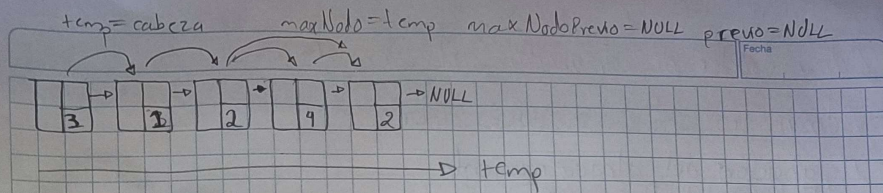 temp=cabeza maxNodo=temp maxNodoPrevio=NULL previo=NULL
Fecha
3 1 2 4 2 NULL
temp